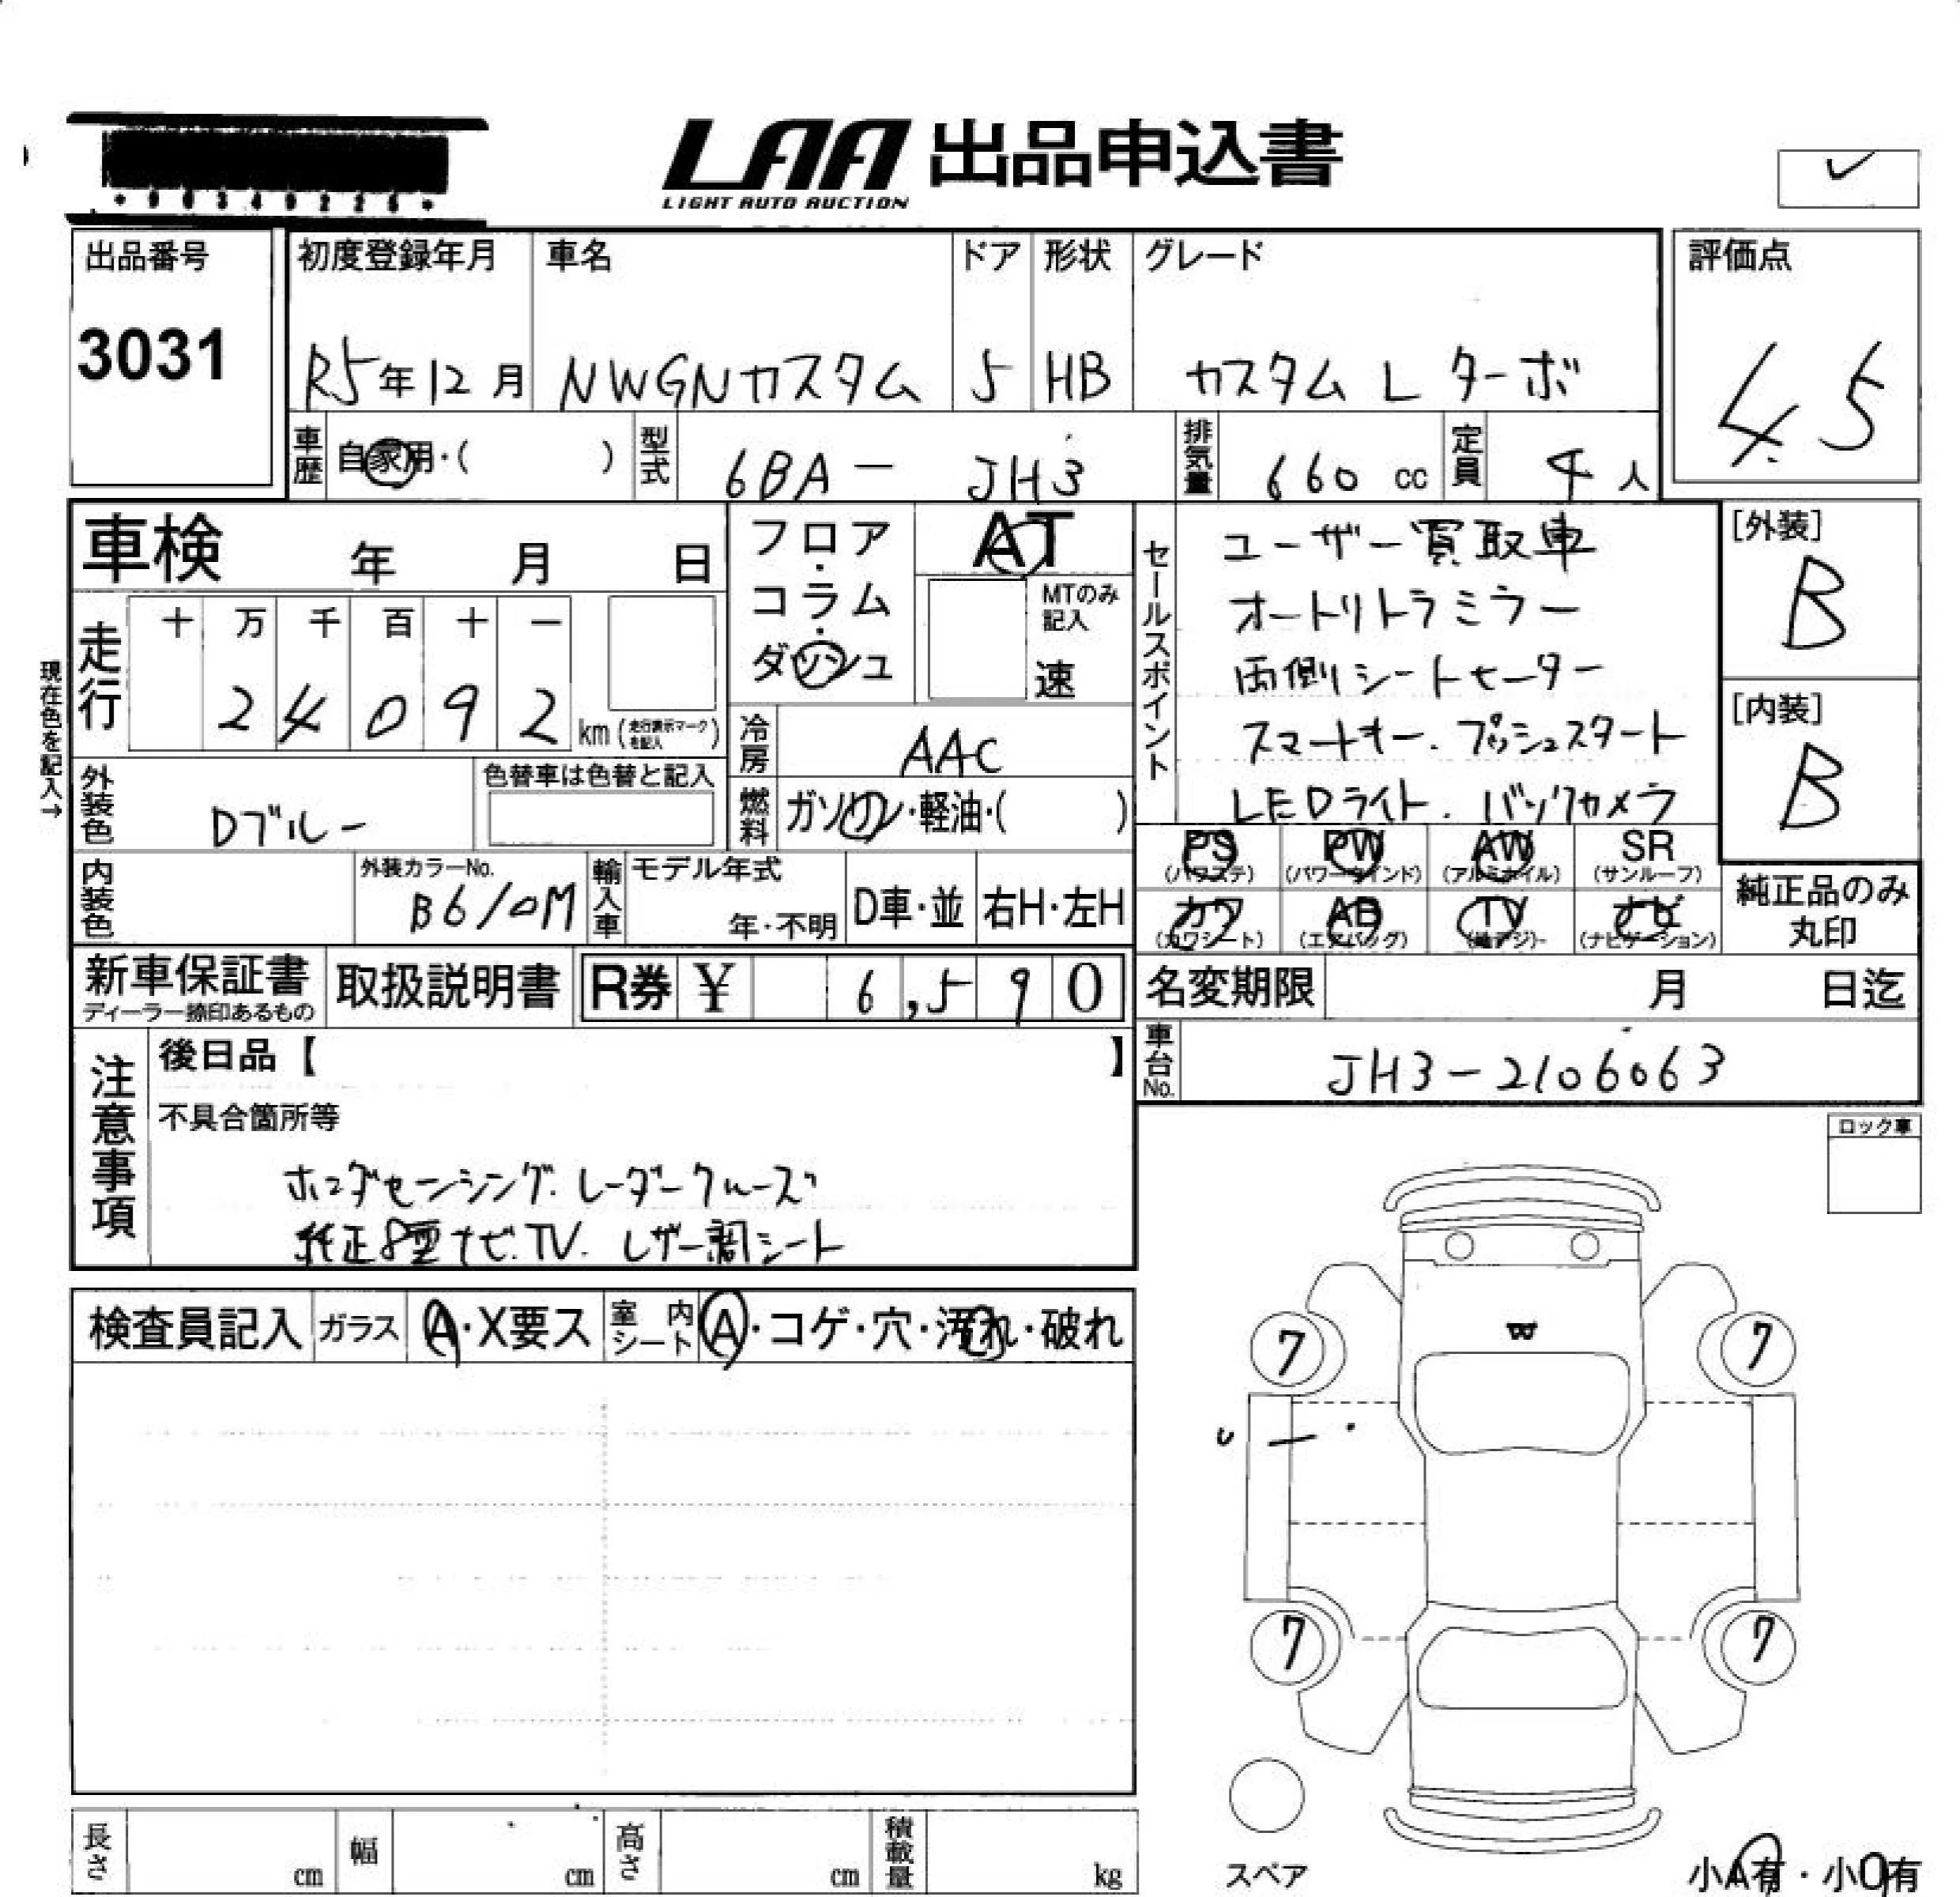 LAA 出品申込書
LIGHT AUTO AUCTION
出品番号
3031
初度登録年月
R5年12月
車名
NWGNカスタム
ドア
5
形状
HB
グレード
カスタム L ターボ
評価点
4.5
車歴 自家用・( )
型式 6BA - JH3
排気量 660 cc
定員 4人
車検 年 月 日
フロア・コラム・ダッシュ
AT
MTのみ記入
速
セールスポイント
ユーザー買取車
オートリトラミラー
両側シートヒーター
スマートキー. プッシュスタート
LEDライト. バックカメラ
[外装]
B
[内装]
B
現在色を記入→
走行
十 万 千 百 十 一
2 4 0 9 2 km (走行表示マークを記入)
冷房 AAC
燃料 ガソリン・軽油・( )
外装色 Dブルー
色替車は色替と記入
内装色
外装カラーNo.
B610M
輸入車 モデル年式
年・不明
D車・並
右H・左H
PS (パワステ)
PW (パワーウインド)
AW (アルミホイル)
SR (サンルーフ)
カワ (カワシート)
AB (エアバッグ)
TV (地デジ)
ナビ (ナビゲーション)
純正品のみ
丸印
新車保証書
ディーラー捺印あるもの
取扱説明書
R券 ¥ 6,590
名変期限 月 日迄
車台No. JH3-2106063
注意事項
後日品【 】
不具合箇所等
ホンダセンシング. レーダークルーズ
純正8型ナビ. TV. レザー調シート
ロック車
検査員記入
ガラス A・X要ス
室内シート A・コゲ・穴・汚れ・破れ
W
7 7
7 7
スペア
長さ cm
幅 cm
高さ cm
積載量 kg
小A有・小O有